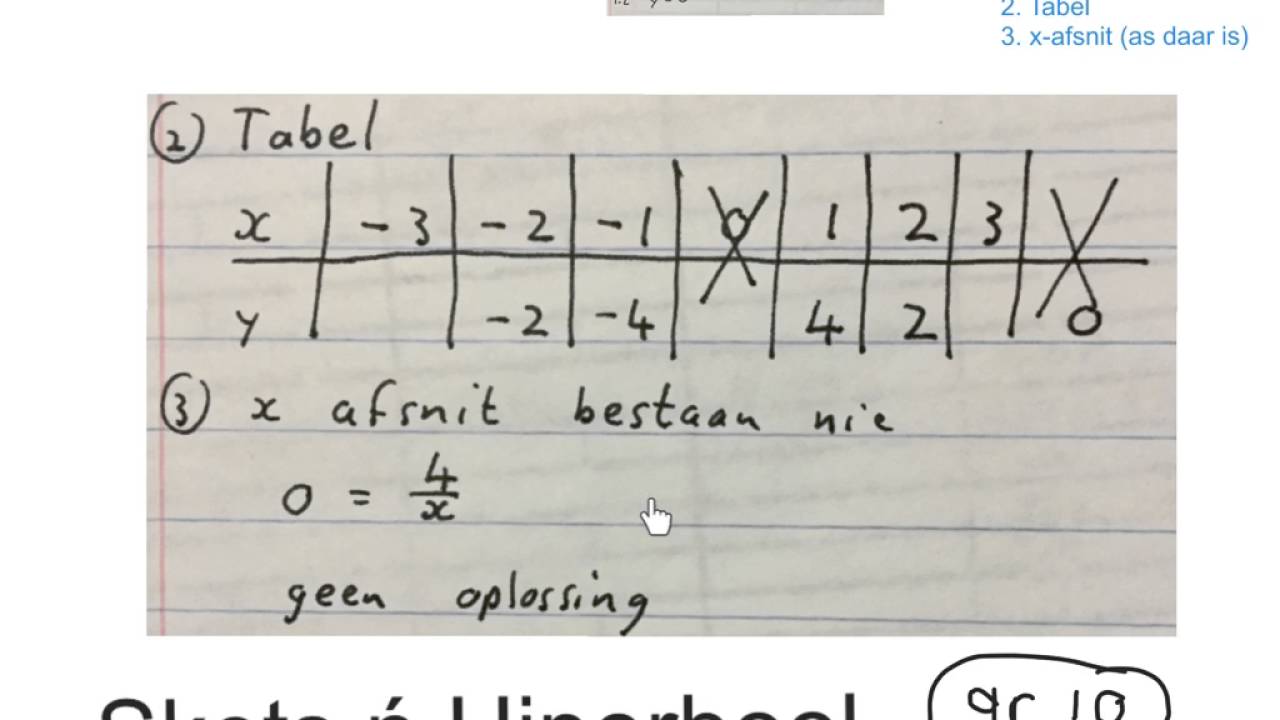 2. Tabel
3. x-afsnit (as daar is)
② Tabel
x | -3 | -2 | -1 | 0 | 1 | 2 | 3 |
y | | -2 | -4 | | 4 | 2 | | 0
③ x afsnit bestaan nie
0 = 4/x
geen oplossing
Skets ń Hiperbool
gr 10